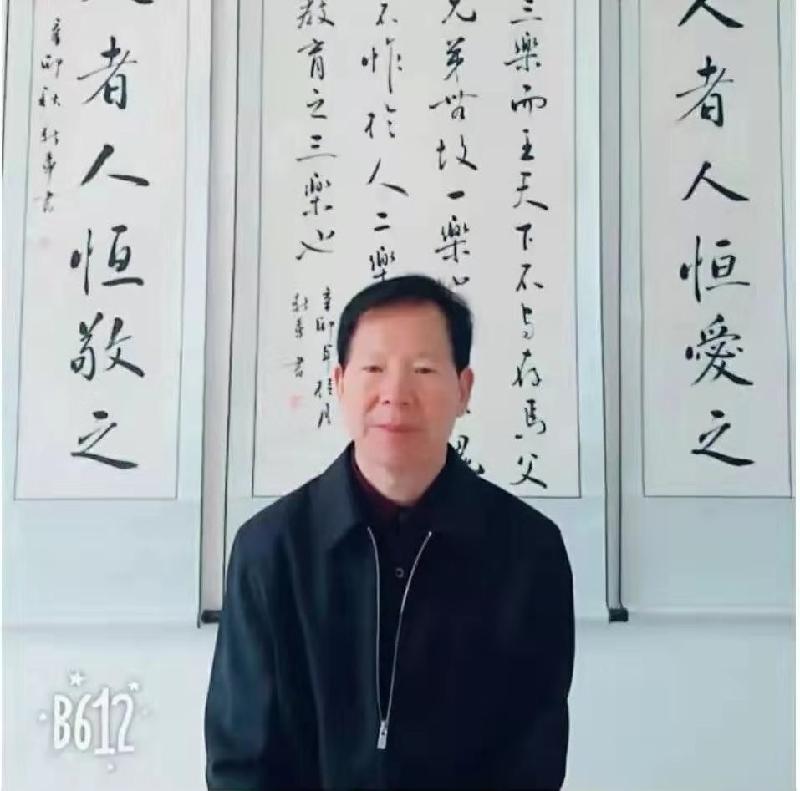 人者人恒愛之
三樂而王天下不与存焉父
兄弟無故一樂也
愧
不怍於人二樂
教育之三樂也
辛卯年桂月
書
人者人恒敬之
辛卯秋
书
B612